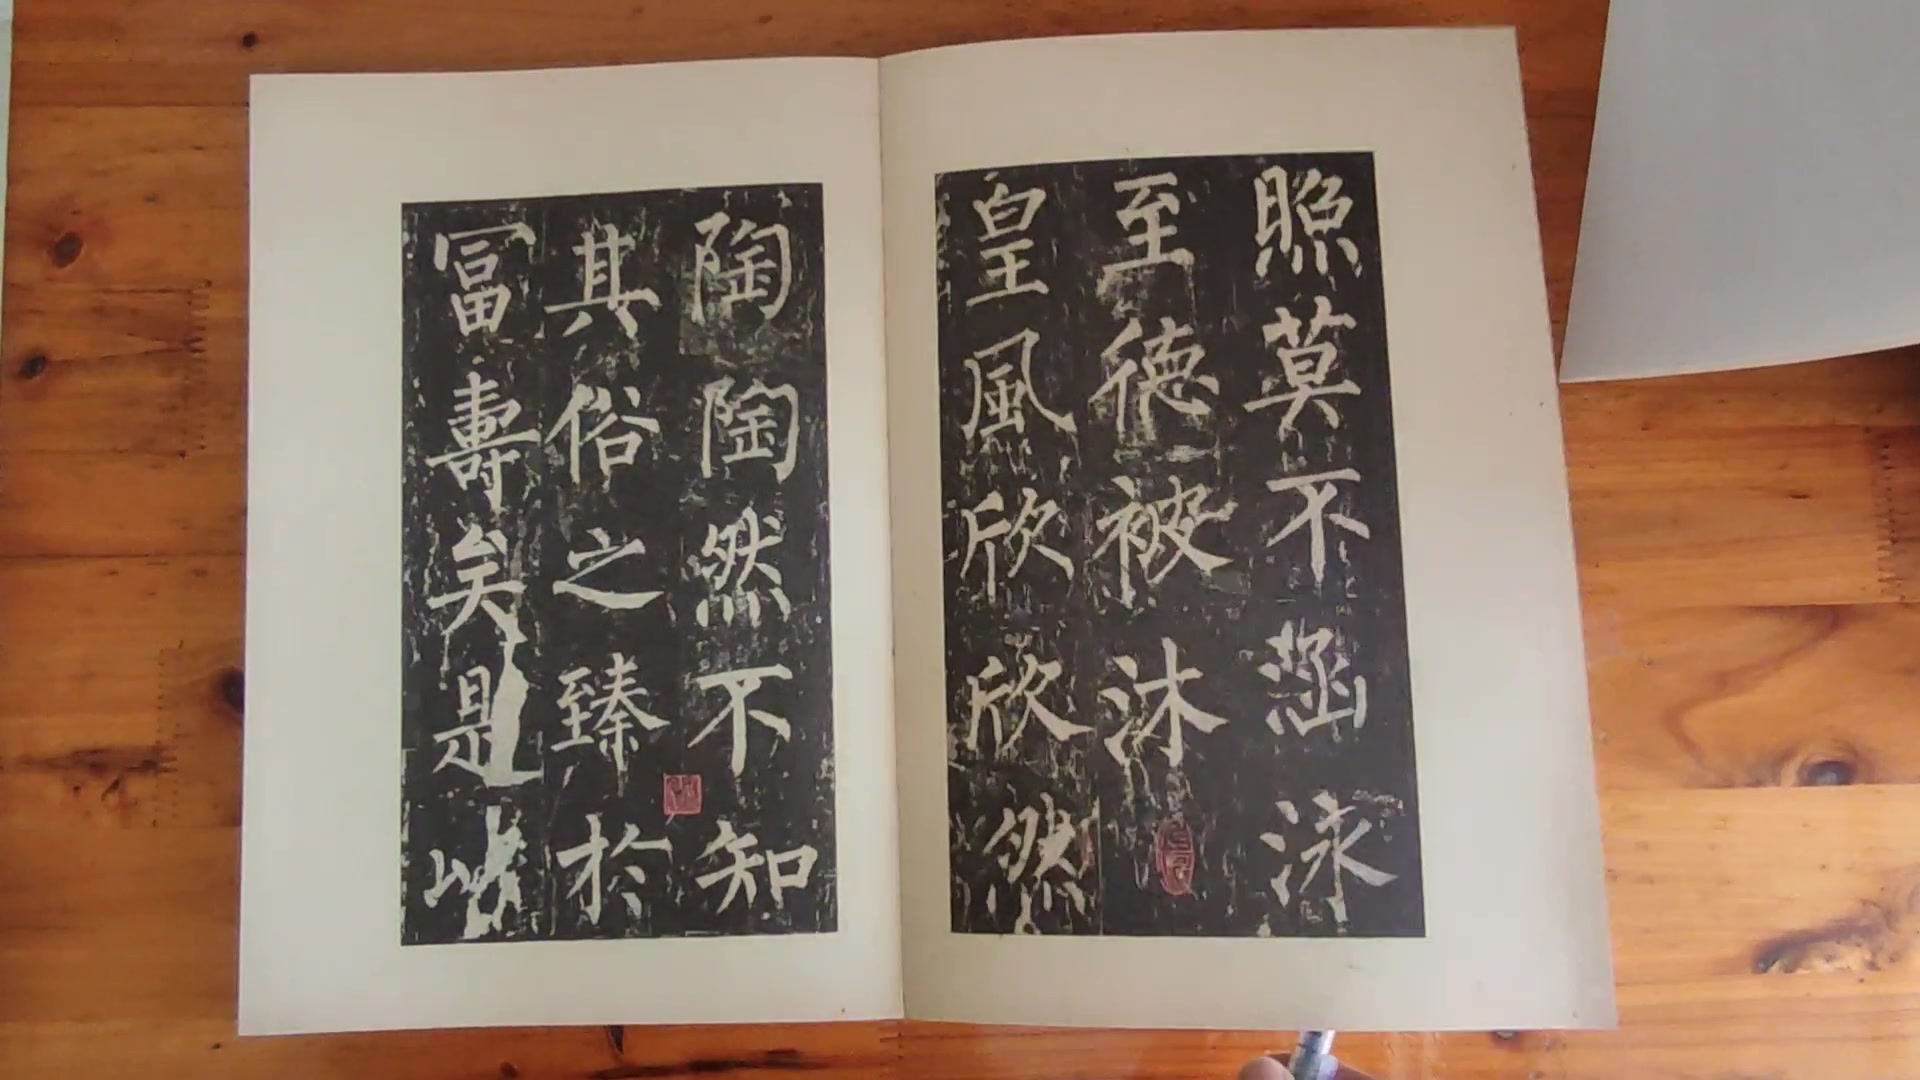 照莫不涵泳
至德被沐
皇風欣欣然
陶陶然不知
其俗之臻於
冨壽矣是以